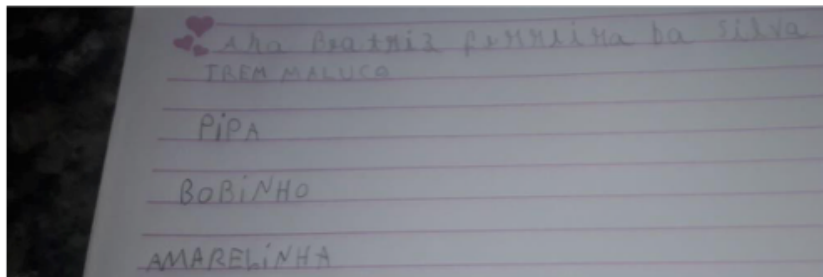 Ana Beatriz ferreira da Silva
TREM MALUCO
PiPA
BOBiNHO
AMARELiNHA